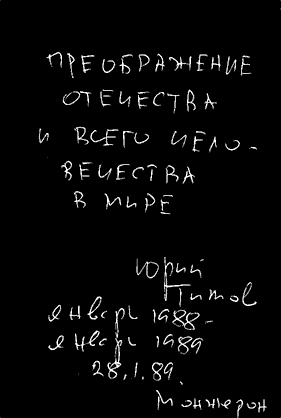 ПРЕОБРАЖЕНИЕ
ОТЕЧЕСТВА
И ВСЕГО ЧЕЛО-
ВЕЧЕСТВА
В МИРЕ
Юрий
Титов
январь 1988-
январь 1989
28.1.89.
Монжерон